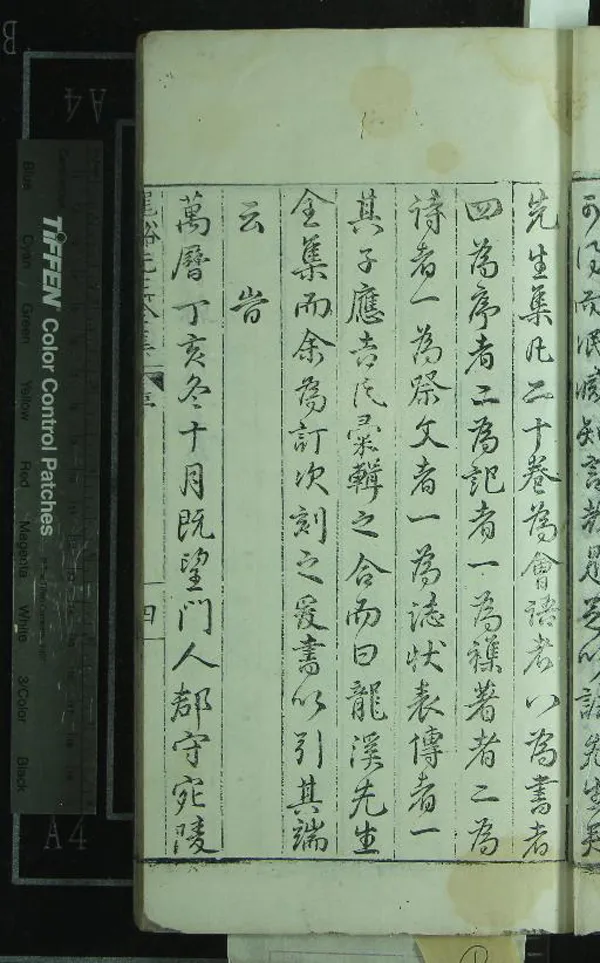 先生集凡二十卷為會語者八為書者
四為序者二為記者一為襍著者二為
詩者一為祭文者一為誌狀表傳者一
其子應吉氏彙輯之合而曰龍溪先生
全集而余為訂次刻之爰書以引其端
云旹
萬曆丁亥冬十月既望門人都守宛陵
龍谿先生全集
四
TIFFEN Color Control Patches
Blue Cyan Green Yellow Red Magenta White 3/Color Black
A4
A4
B